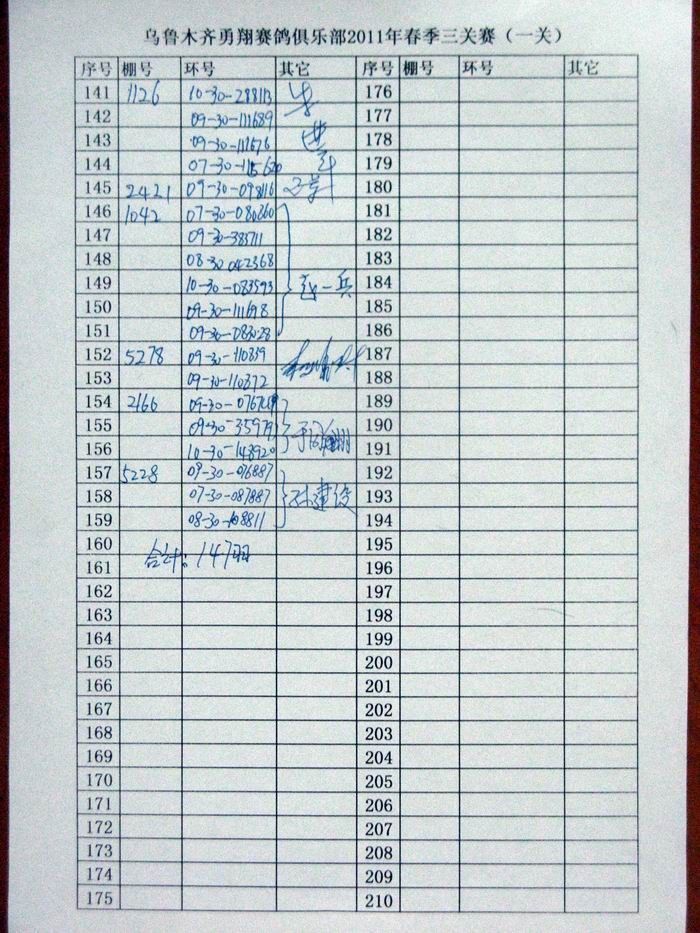 乌鲁木齐勇翔赛鸽俱乐部2011年春季三关赛（一关）
序号 棚号 环号 其它 序号 棚号 环号 其它
141 1126 10-30-288113 176
142 09-30-111689 177
143 09-30-111676 178
144 07-30- 179
145 2421 09-30-098116 180
146 1042 07-30-080360 181
147 09-30-385711 182
148 08-30-042368 183
149 10-30-083593 赵一兵 184
150 09-30-111698 185
151 09-30-083028 186
152 5278 09-30-110839 187
153 09-30-110372 188
154 2166 09-30- 189
155 09-30-35979 190
156 10-30-148920 191
157 5228 09-30-076887 192
158 07-30-087887 孙建设 193
159 08-30-108811 194
160 195
合计:147羽
161 196
162 197
163 198
164 199
165 200
166 201
167 202
168 203
169 204
170 205
171 206
172 207
173 208
174 209
175 210